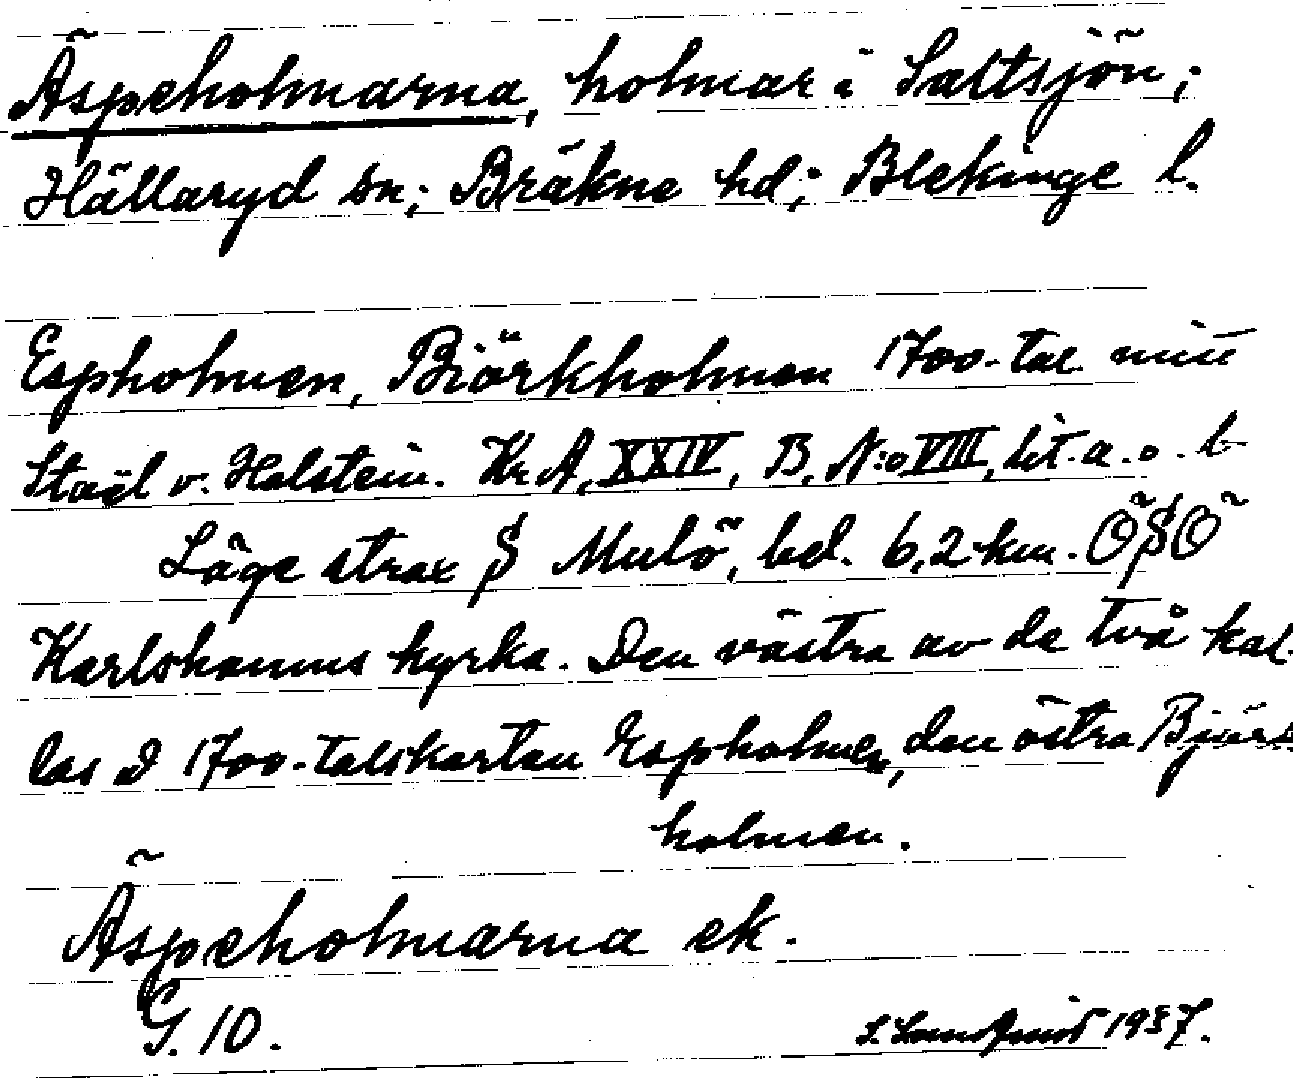 Äspeholmarna, holmar i Saltsjön;
Hällaryd sn; Bräkne hd; Blekinge l.
Espholmen, Biörkholmen 1700-tal
Staël v. Holstein. Kr. A, XXIV, B, N:o VIII, lit. a. o. b
Läge strax § Mulö, bel. 6,2 km. Ö§Ö
Karlshamns kyrka. Den västra av de två kal-
las å 1700-talskartan Espholmen, den östra Biörk
holmen.
Äspeholmarna ek.
G. 10.
1937.